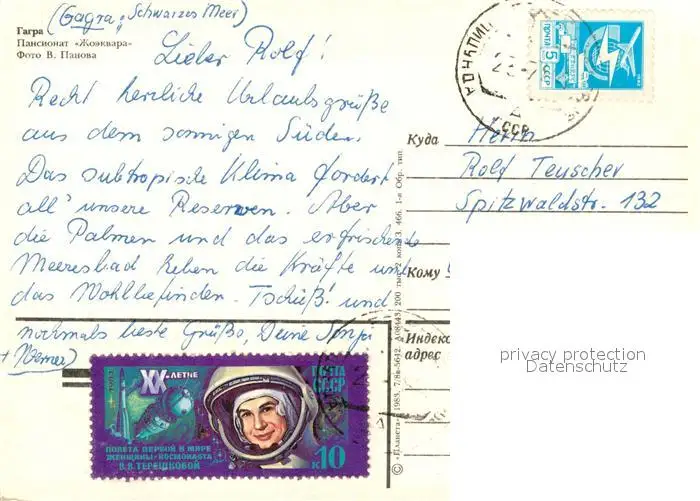 (Gagra, Schwarzes Meer)
Гагра
Пансионат «Жоэквара»
Фото В. Панова
Lieber Rolf!
Recht herzliche Urlaubsgrüße
aus dem sonnigen Süden.
Das subtropische Klima fordert
all' unsere Reserven. Aber
die Palmen und das erfrischende
Meeresbad heben die Kräfte und
das Wohlbefinden. Tschüß! und
nochmals beste Grüße, Deine
+ Werner)
ПОЧТА
5
СССР
Куда
Herrn
Rolf Teuscher
Spitzwaldstr. 132
Кому
Индекс
адрес
© «Планета», 1983. 7/8в-5642. А08443. 200 тыс. 2 коп. З. 466. 1-я Обр. тип.
1983
XX-ЛЕТИЕ
ПОЧТА
СССР
ПОЛЕТА ПЕРВОЙ В МИРЕ
ЖЕНЩИНЫ-КОСМОНАВТА
В.В.ТЕРЕШКОВОЙ
к10
privacy protection
Datenschutz